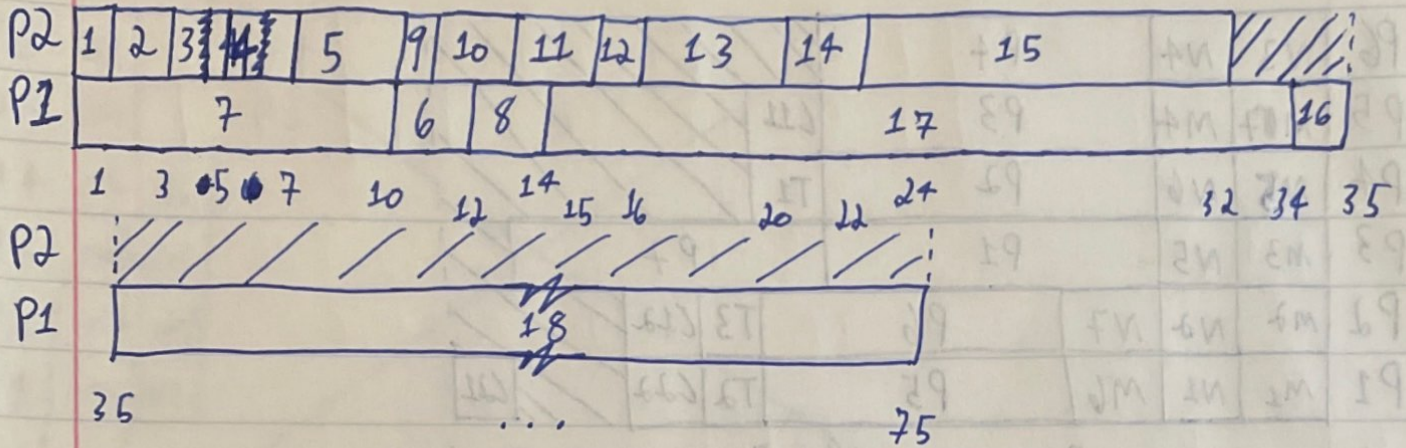 P2 1 2 3 4 5 9 10 11 12 13 14 15
P1 7 6 8 17 16
1 3 5 7 10 12 14 15 16 20 22 24 32 34 35
P2
P1 18
35 ... 75